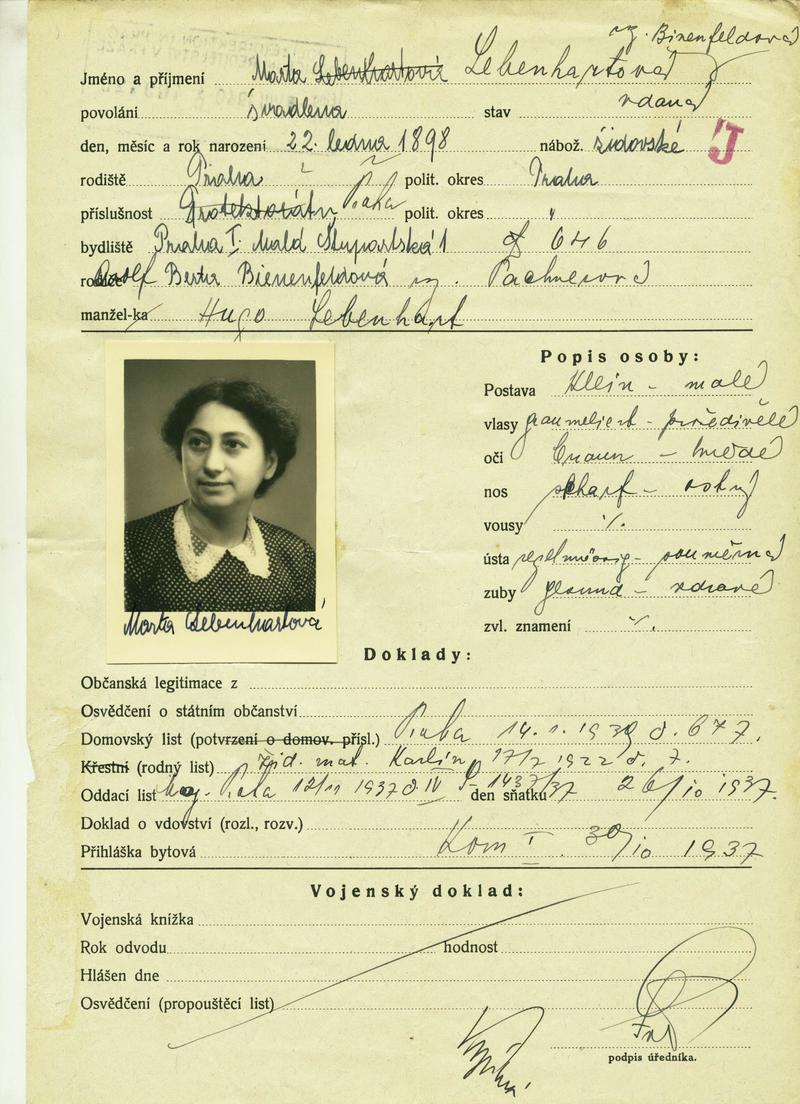 roz. Bienenfeldová
Jméno a příjmení Marta Lebenhartová Lebenhartová
povolání švadlena stav vdaná
den, měsíc a rok narození 22. ledna 1898 nábož. židovské J
rodiště Praha polit. okres Praha
příslušnost Protektorátu Praha polit. okres "
bydliště Praha I. Malá Štupartská 1 č 646
Adolf Berta Bienenfeldová roz. Pachnerová
manžel-ka Hugo Lebenhart
Popis osoby:
Postava Klein - malé
vlasy graumeliert - prošedivělé
oči braun - hnědé
nos scharf - ostrý
vousy ·/.
ústa regelmässig - souměrná
zuby gesund - zdravé
zvl. znamení ·/.
Marta Lebenhartová
Doklady:
Občanská legitimace z
Osvědčení o státním občanství
Domovský list (potvrzení o domov. přísl.) Praha 14. 1. 1939 č. 677.
Křestní (rodný list) žid. mat. Karlín 17/7 1922 č. 7.
Oddací list Praha 12/11 1937 č IV 1437/37 den sňatku 26/10 1937.
Doklad o vdovství (rozl., rozv.)
Přihláška bytová Kom I. 30/10 1937
Vojenský doklad:
Vojenská knížka
Rok odvodu hodnost
Hlášen dne
Osvědčení (propouštěcí list)
podpis úředníka.